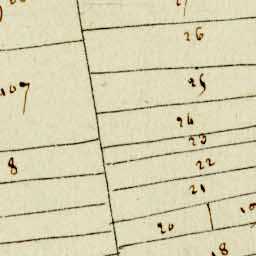 26
25
107
24
23
8
22
21
20
18